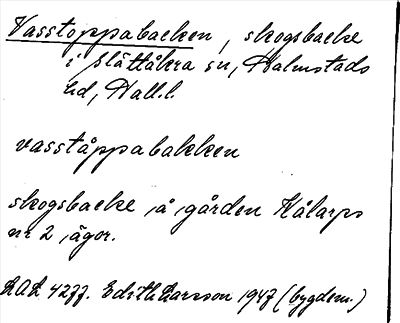 Vasstoppabacken, skogsbacke
i Slättåkra sn, Halmstads
hd, Hall.l.
vasståppabakken
skogsbacke å gården Kålarps
nr 2 ägor.
LAL 4277. Edith Larsson 1947 (bygdem.)